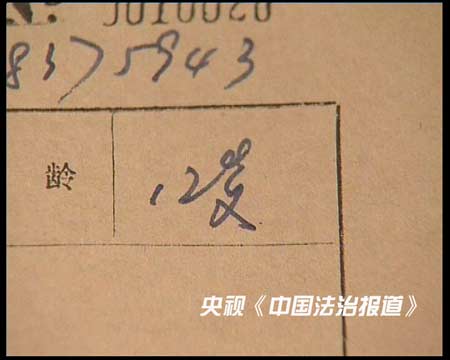 8375943
龄 12岁
央视《中国法治报道》